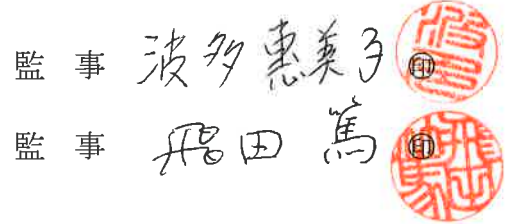 監 事 波多恵美子 ㊞
監 事 飛田 篤 ㊞